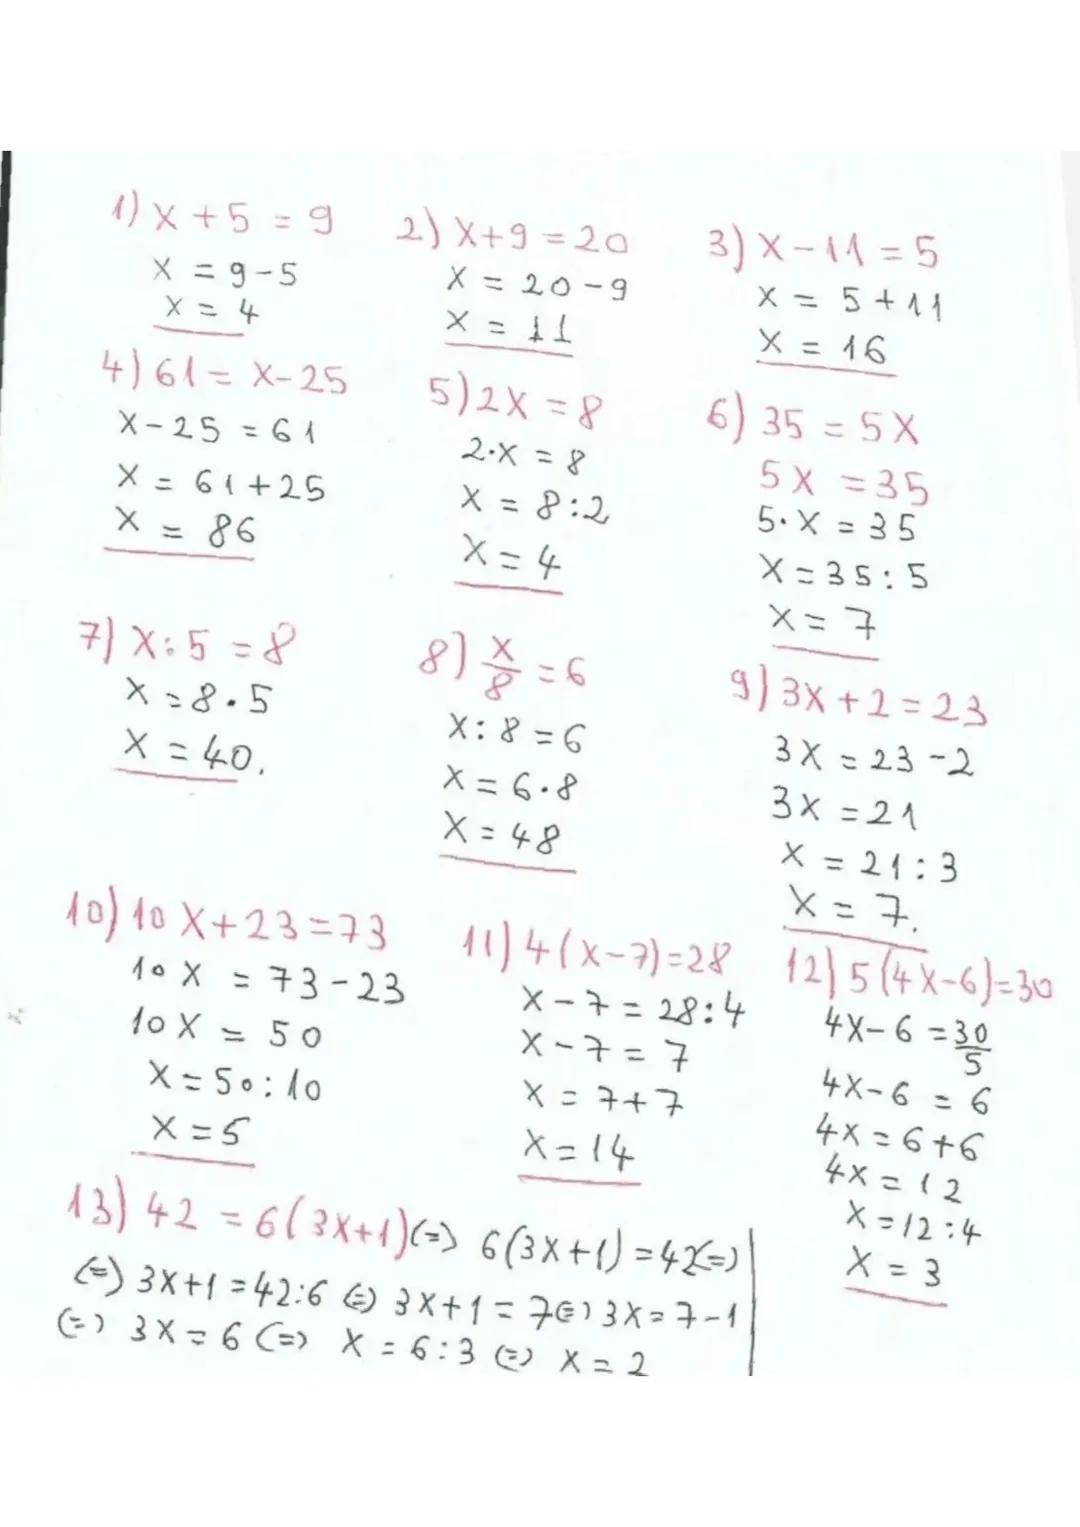 1) x + 5 = 9
x = 9 - 5
x = 4
2) x + 9 = 20
x = 20 - 9
x = 11
3) x - 11 = 5
x = 5 + 11
x = 16
4) 61 = x - 25
x - 25 = 61
x = 61 + 25
x = 86
5) 2x = 8
2·x = 8
x = 8:2
x = 4
6) 35 = 5x
5x = 35
5·x = 35
x = 35:5
x = 7
7) x:5 = 8
x = 8·5
x = 40.
8) x/8 = 6
x:8 = 6
x = 6·8
x = 48
9) 3x + 2 = 23
3x = 23 - 2
3x = 21
x = 21:3
x = 7.
10) 10x + 23 = 73
10x = 73 - 23
10x = 50
x = 50:10
x = 5
11) 4(x-7) = 28
x - 7 = 28:4
x - 7 = 7
x = 7+7
x = 14
12) 5(4x-6) = 30
4x - 6 = 30/5
4x - 6 = 6
4x = 6+6
4x = 12
x = 12:4
x = 3
13) 42 = 6(3x+1) (=) 6(3x+1) = 42 (=)
(=) 3x+1 = 42:6 (=) 3x+1 = 7 (=) 3x = 7-1
(=) 3x = 6 (=) x = 6:3 (=) x = 2